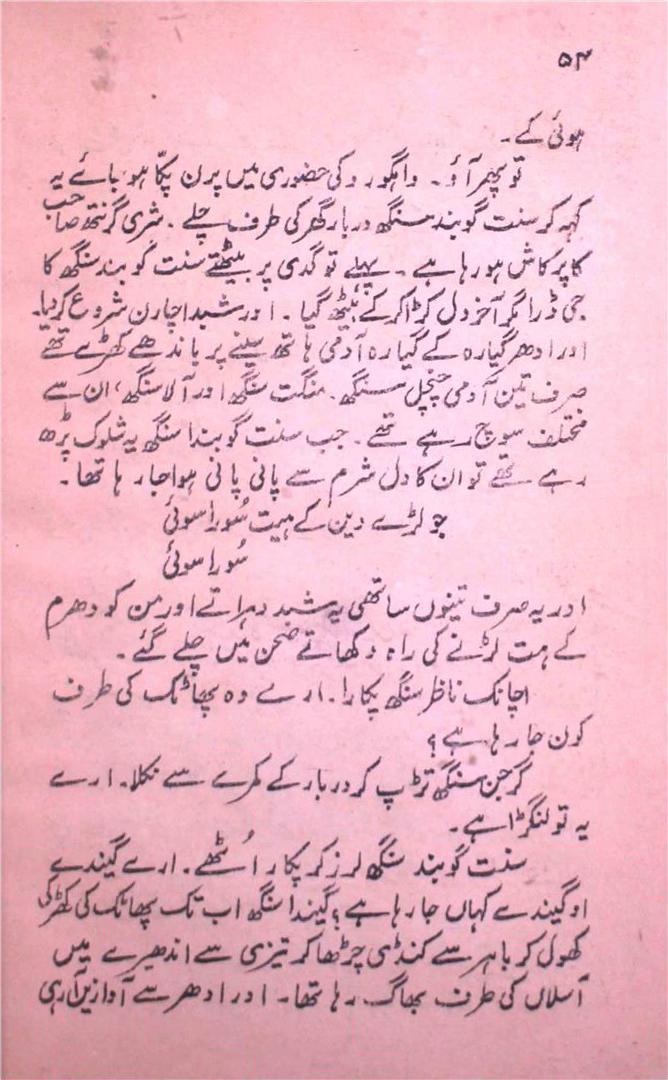 ۵۴
ہوئی کے۔
تو پھر آؤ۔ واہگورو کی حضوری میں پرن پکّا ہو جائے یہ
کہہ کر سنت گوبند سنگھ دربار گھر کی طرف چلے۔ شری گرنتھ صاحب
کا پرکاش ہو رہا ہے۔ پہلے تو گدی پر بیٹھتے سنت گوبند سنگھ کا
جی ڈرا مگر آخر دل کڑا کر کے بیٹھ گیا۔ اور شبد اچارن شروع کر دیا۔
اور ادھر گیارہ کے گیارہ آدمی ہاتھ سینے پر باندھے کھڑے تھے
صرف تین آدمی چنچل سنگھ۔ منگت سنگھ اور آلا سنگھ، ان سے
مختلف سوچ رہے تھے۔ جب سنت گوبندا سنگھ یہ شلوک پڑھ
رہے تھے تو ان کا دل شرم سے پانی پانی ہوا جا رہا تھا۔
جو لڑے دین کے ہیت سُورا سوئی
سُورا سوئی
اور یہ صرف تینوں ساتھی یہ شبد دہراتے اور من کو دھرم
کے ہت لڑنے کی راہ دکھاتے صحن میں چلے گئے۔
اچانک ناظر سنگھ پکارا۔ ارے وہ پھاٹک کی طرف
کون جا رہا ہے؟
گرجن سنگھ تڑپ کر دربار کے کمرے سے نکلا۔ ارے
یہ تو لنگڑا ہے۔
سنت گوبند سنگھ لرز کر پکار اُٹھے۔ ارے گیندے
او گیندے کہاں جا رہا ہے؟ گیندا سنگھ اب تک پھاٹک کی کھڑکی
کھول کر باہر سے کنڈی چڑھا کر تیزی سے اندھیرے میں
آسلاں کی طرف بھاگ رہا تھا۔ اور ادھر سے آوازیں آ رہی